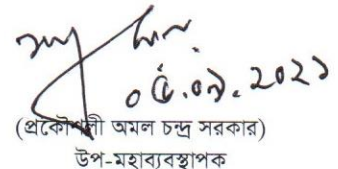 ০৫.০৯.২০২১
(প্রকৌশলী অমল চন্দ্র সরকার)
উপ-মহাব্যবস্থাপক